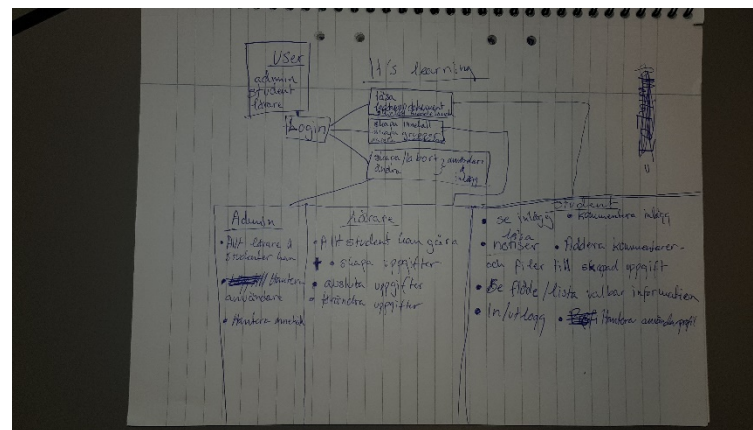 User
admin
student
lärare
It's learning
Login
läsa
skapa innehåll
skapa grupper
användare
Admin
• Allt lärare &
studenter kan
• Hantera
användare
• Hantera innehåll
Lärare
• Allt student kan göra
+ • skapa uppgifter
• avsluta uppgifter
• förändra uppgifter
Student
• se inlägg • kommentera inlägg
• läsa notiser • Addera kommentarer
och filer till skapad uppgift
• Se flöde/lista valbar information
• In/utlogg • Hantera användarprofil